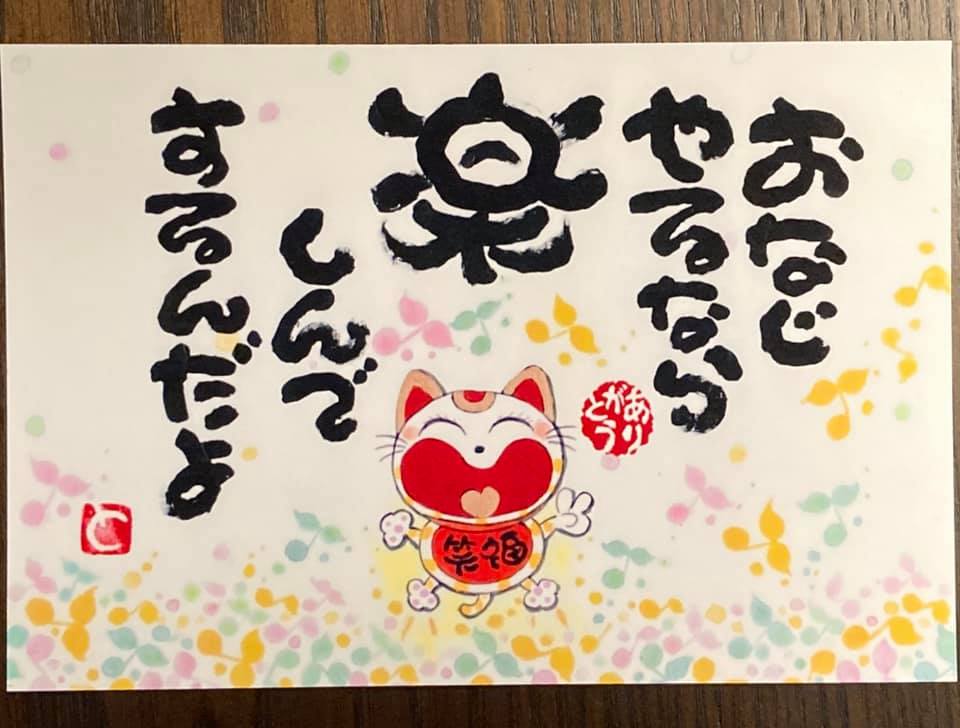 おなじ
やるなら
楽
しんで
するんだよ
ありがとう
笑福
と